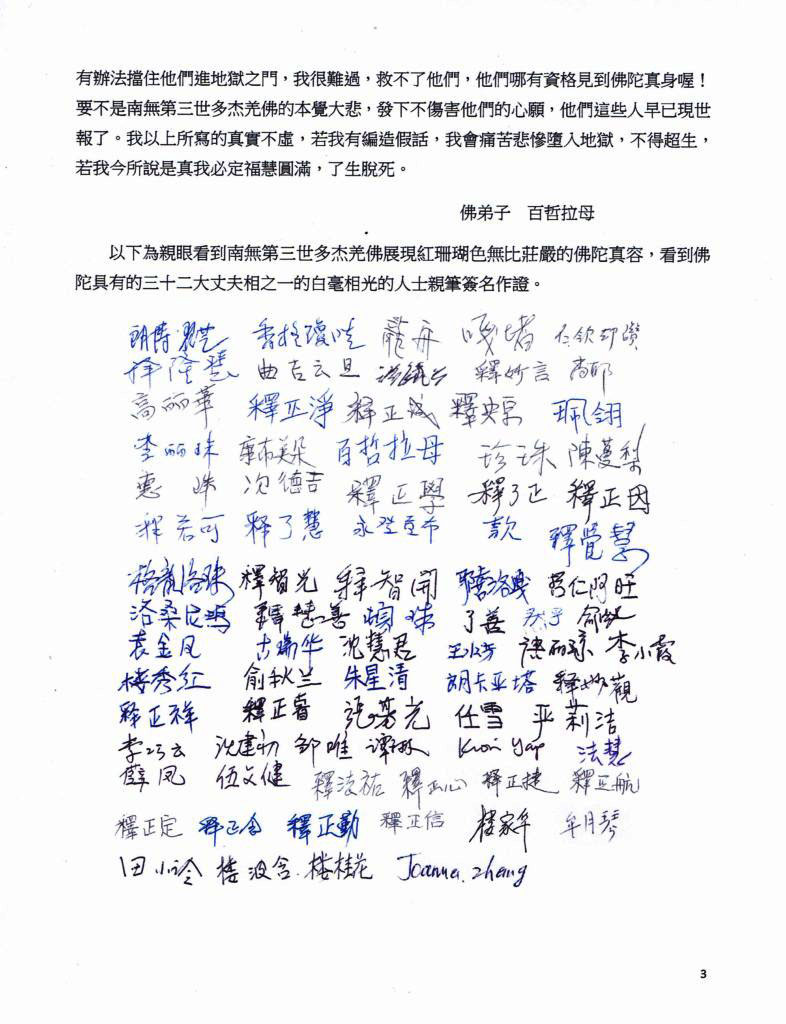 有辦法擋住他們進地獄之門，我很難過，救不了他們，他們哪有資格見到佛陀真身喔！
要不是南無第三世多杰羌佛的本覺大悲，發下不傷害他們的心願，他們這些人早已現世
報了。我以上所寫的真實不虛，若我有編造假話，我會痛苦悲慘墮入地獄，不得超生，
若我今所說是真我必定福慧圓滿，了生脫死。
佛弟子　百哲拉母
以下為親眼看到南無第三世多杰羌佛展現紅珊瑚色無比莊嚴的佛陀真容，看到佛
陀具有的三十二大丈夫相之一的白毫相光的人士親筆簽名作證。
香格瓊哇 龍舟 嘎堵 仁欽却讚
釋隆慧 曲吉云旦 釋妙言
高丽華 釋正淨 释正 珮翎
李丽珠 百哲拉母 珍珠 陳蔓梨
惠珠 次德吉 釋正學 释了正 釋正因
释若可 释了慧 釋覺慧
釋智光 释智開
洛桑尼瑪 釋慧善 了善
袁金凤 古瑞华 沈慧君 李小霞
楼秀红 俞秋兰 朱星清 胡卡亚塔 釋妙觀
释正祥 釋正睿 任雪 严莉洁
李巧云 沈建初 邹唯 Kwai Yap 法慧
薛凤 伍文健 釋凌祐 釋正心 释正捷 釋正航
釋正定 释正念 釋正勤 釋正信 楼家年 牟月琴
田小玲 楼波含 楼桂花 Joanna Zheng
3